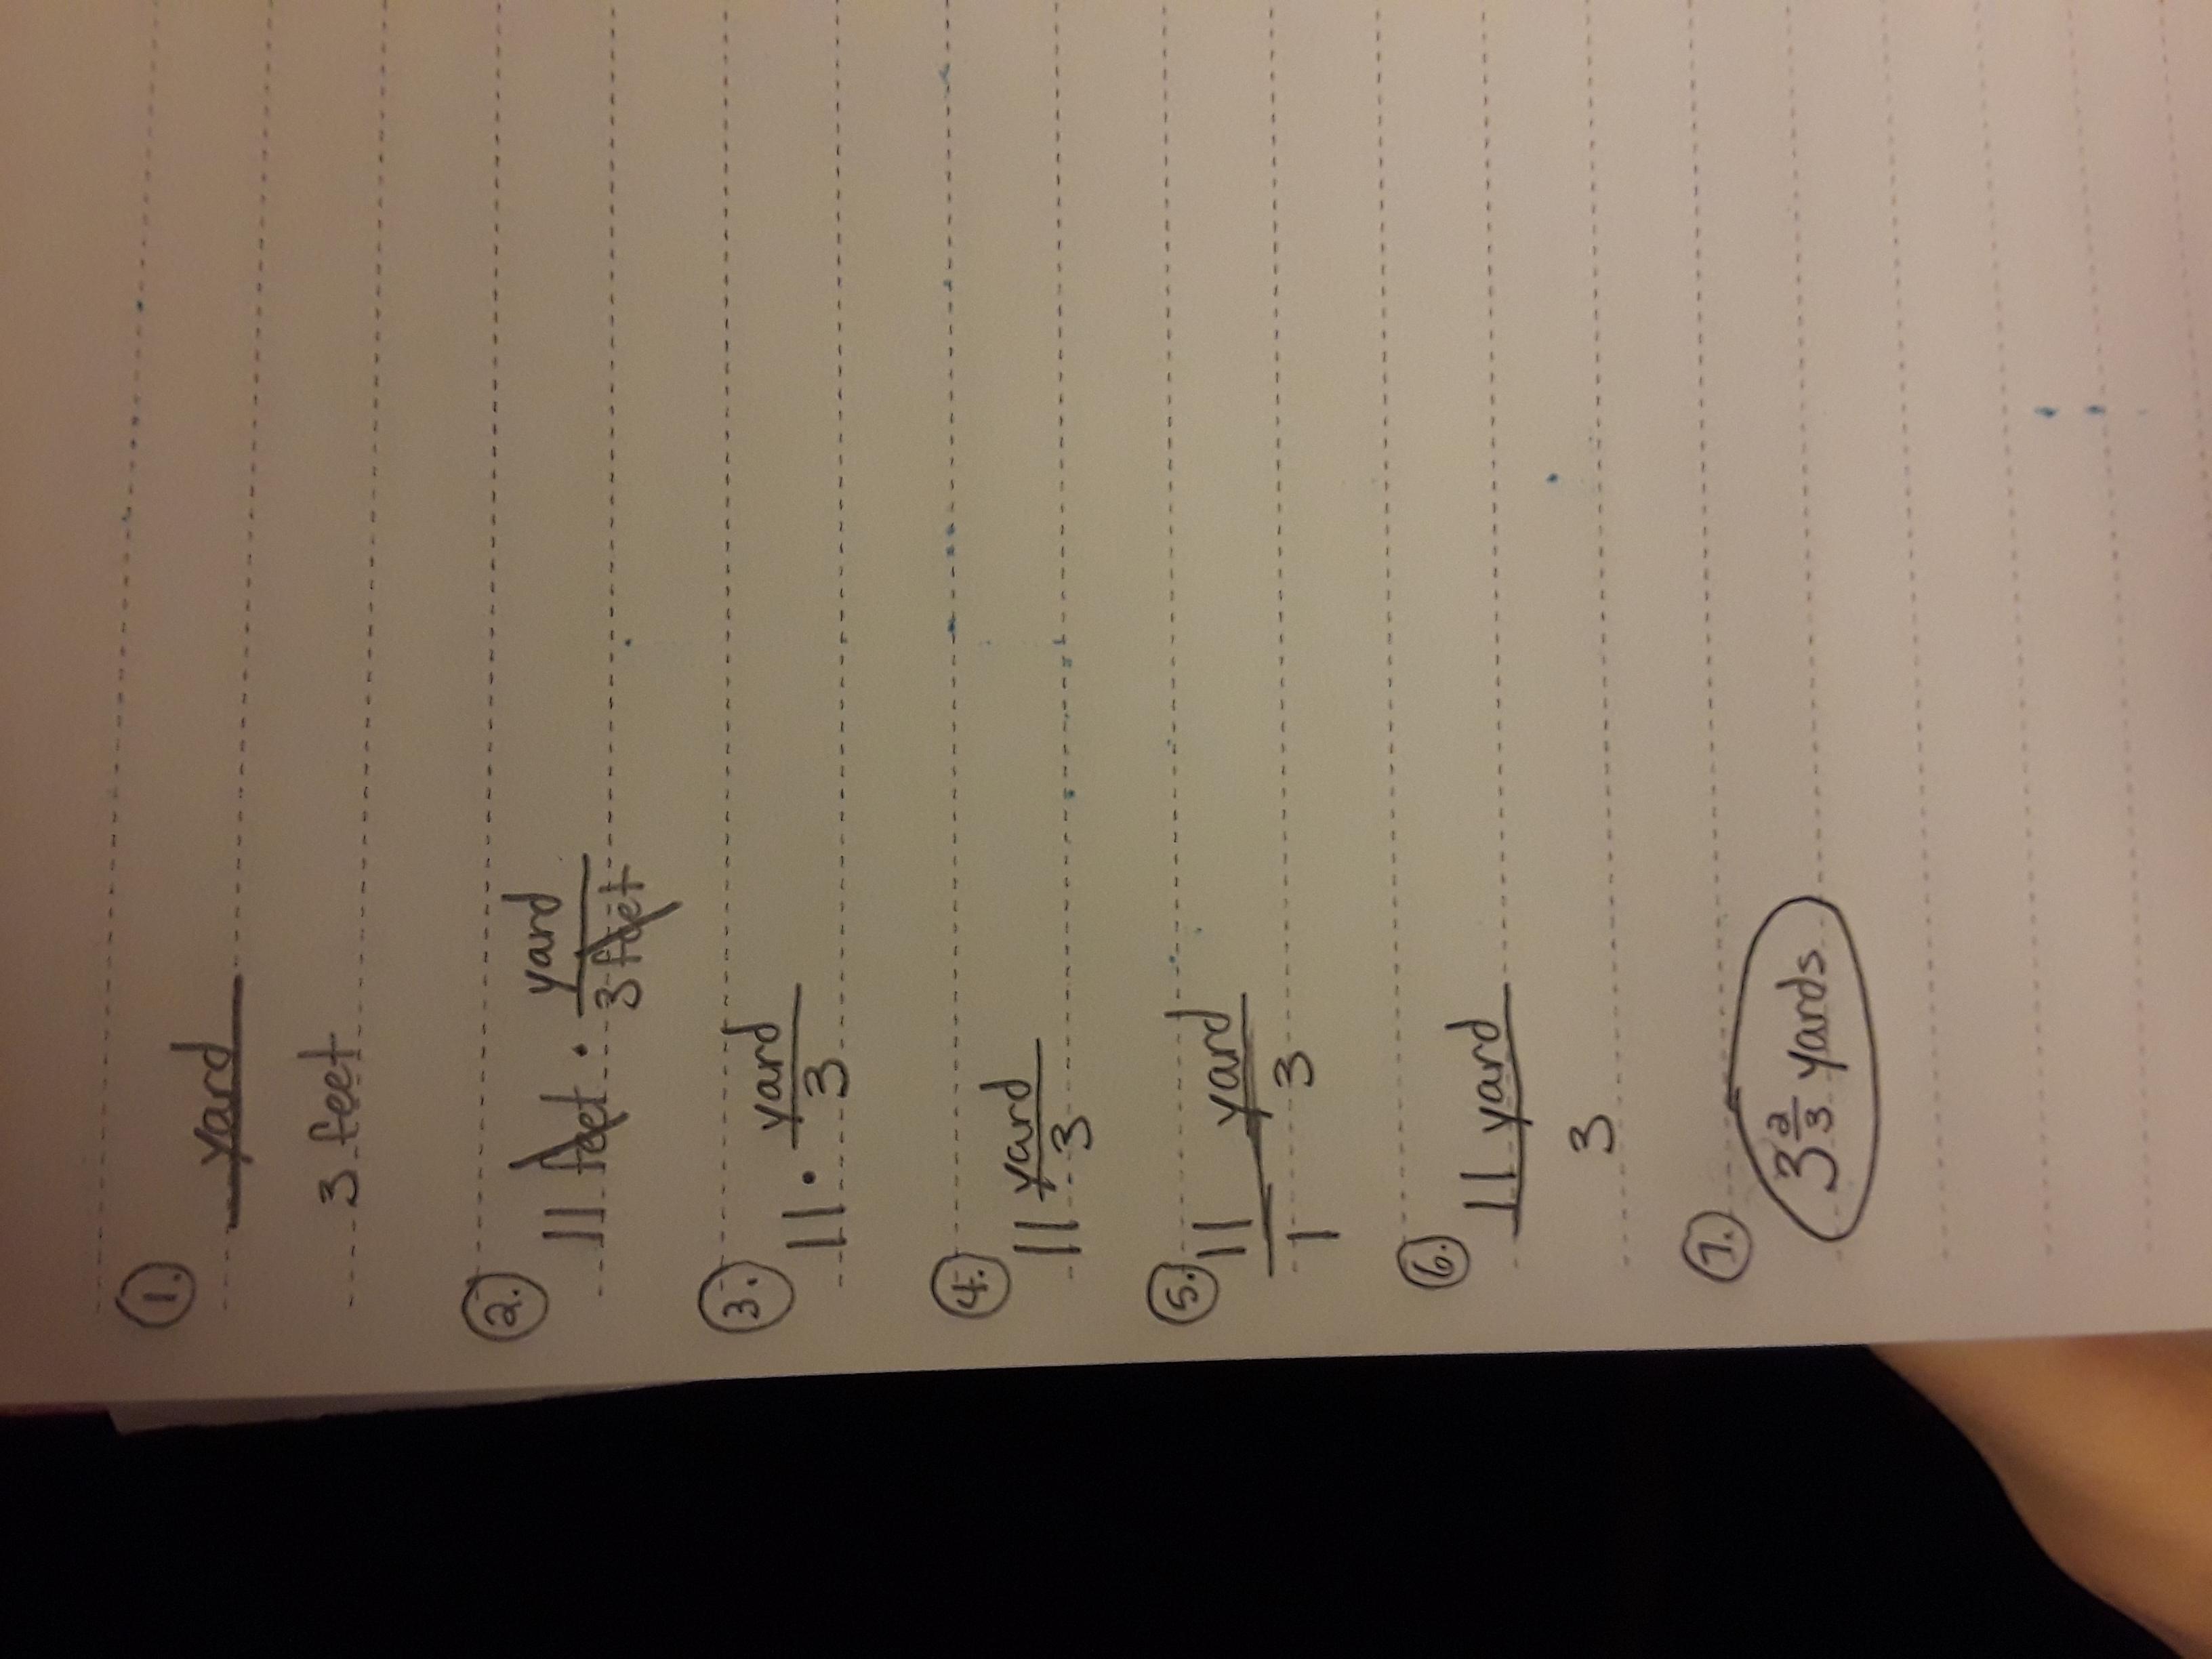 1.
yard
3 feet
2.
11 feet · yard
3 feet
3.
11 · yard
3
4.
11 yard
3
5.
11 yard
1 3
6.
11 yard
3
7.
3 2/3 yards